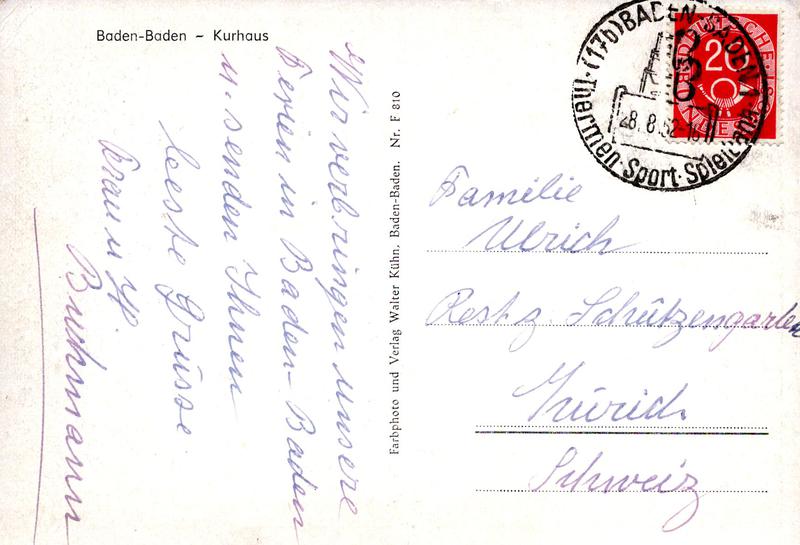 Baden-Baden – Kurhaus
Wir verbringen unsere
Ferien in Baden-Baden
u. senden Ihnen
beste Grüsse
Frau u
Buchmann
Farbphoto und Verlag Walter Kühn, Baden-Baden. Nr. F 810
(17b) BADEN-BADEN 1
Thermen · Sport · Spielbank
28.8.52-16
DEUTSCHE
20
Familie
Ulrich
Rest z. Schützengarten
Zürich
Schweiz